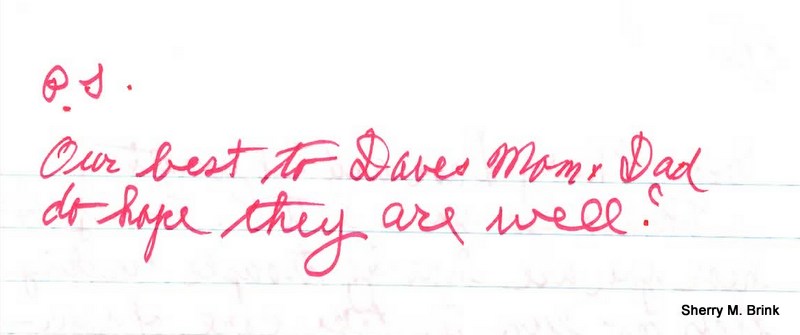 P.S.
Our best to Daves Mom & Dad
do hope they are well?
Sherry M. Brink